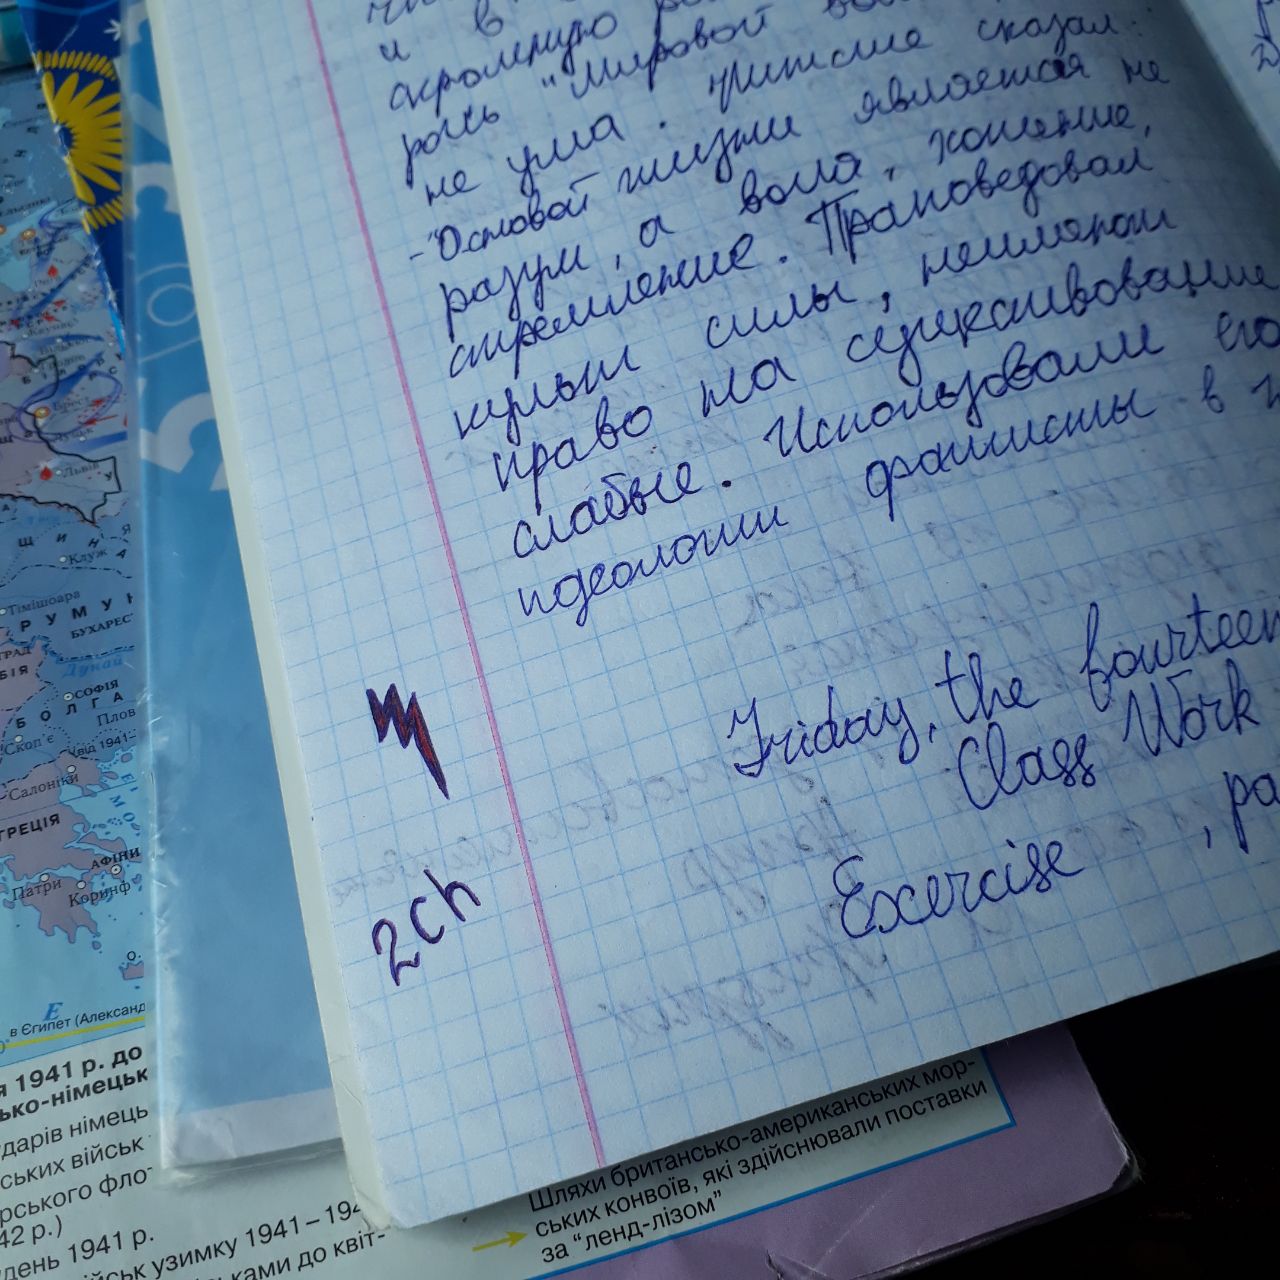 и в
огромную
роль "Мировой
не ума. Ницше сказал:
- "Основой жизни является не
разум, а воля, хотение,
стремление. Праповедовал
культ силы, неимеют
право на существование
слабые. Использовали его
идеологии фашисты в
Friday, the fourteen
Class Work
Exercise , ра
2ch
Львів
Клуж
Тімішоара
РУМУН
БУХАРЕС
Дунай
СОФІЯ
БОЛГА
Плов
Скоп'є
Салоніки
ГРЕЦІЯ
АФІНИ
Патри
Коринф
Е
в Єгипет (Александ
я 1941 р. до
ько-німецьк
ударів німець
ських військ
рського фло
42 р.)
день 1941 р.
ійськ узимку 1941–194
ьками до квіт-
Шляхи британсько-американських мор-
ських конвоїв, які здійснювали поставки
за "ленд-лізом"